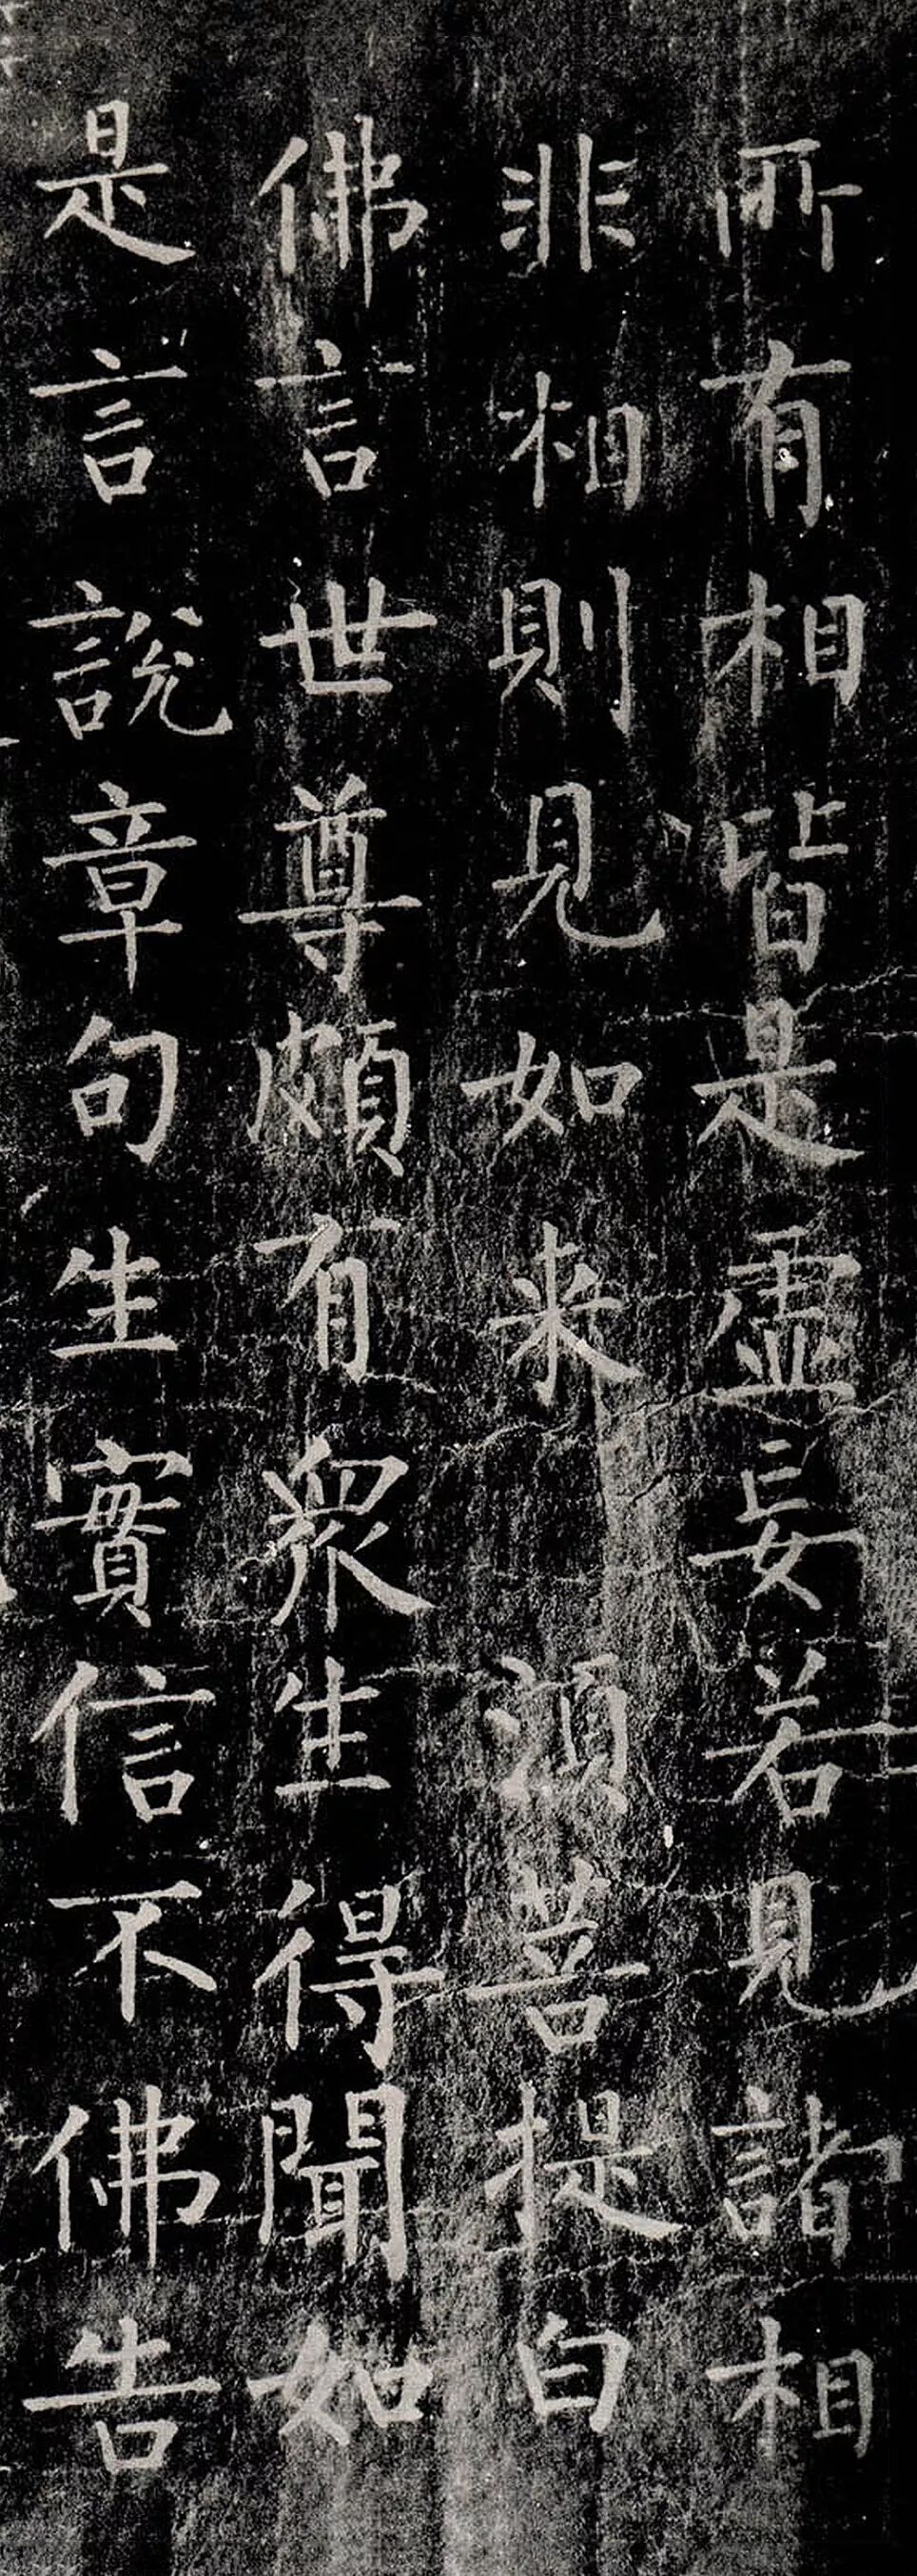 所有相皆是虛妄若見諸相
非相則見如来須菩提白
佛言世尊頗有眾生得聞如
是言說章句生實信不佛告